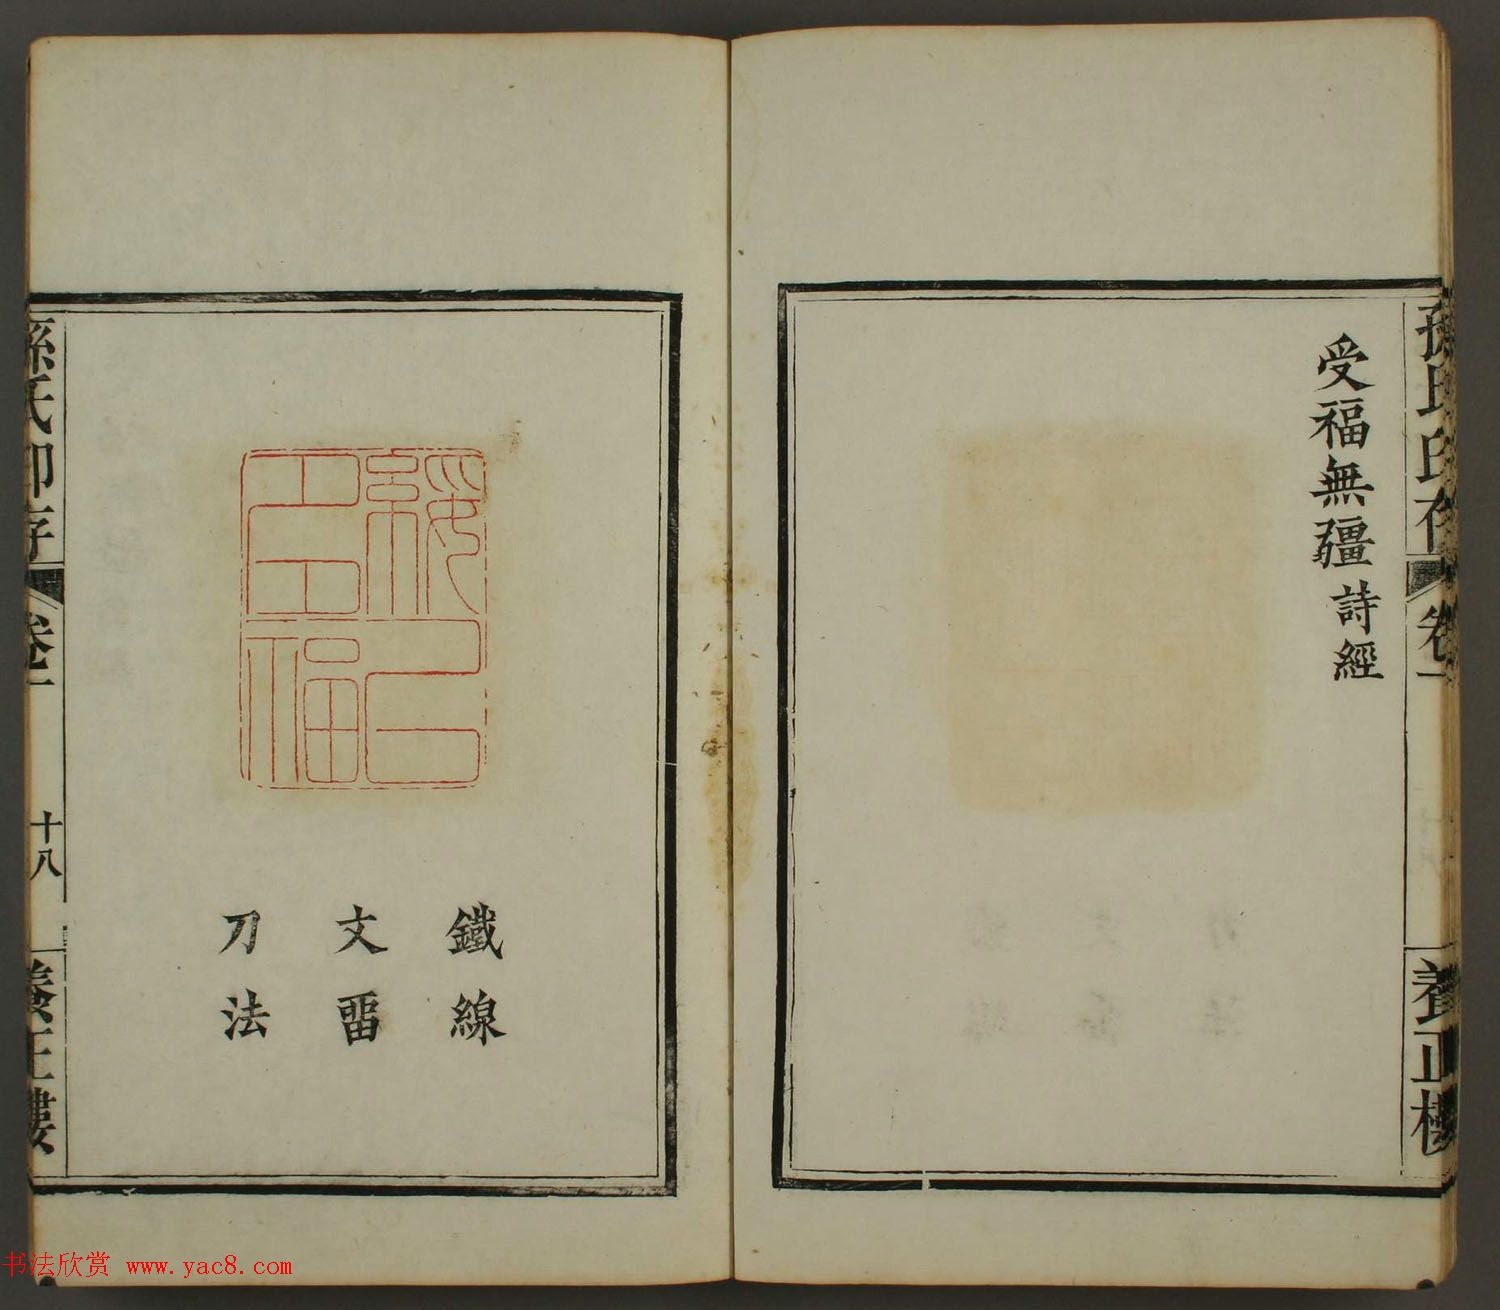 受福無疆詩經
孫氏印存 卷一 養正樓
綏以
多福
鐵線
文畱
刀法
孫氏印存 卷一 十八 養正樓
书法欣赏 www.yac8.com